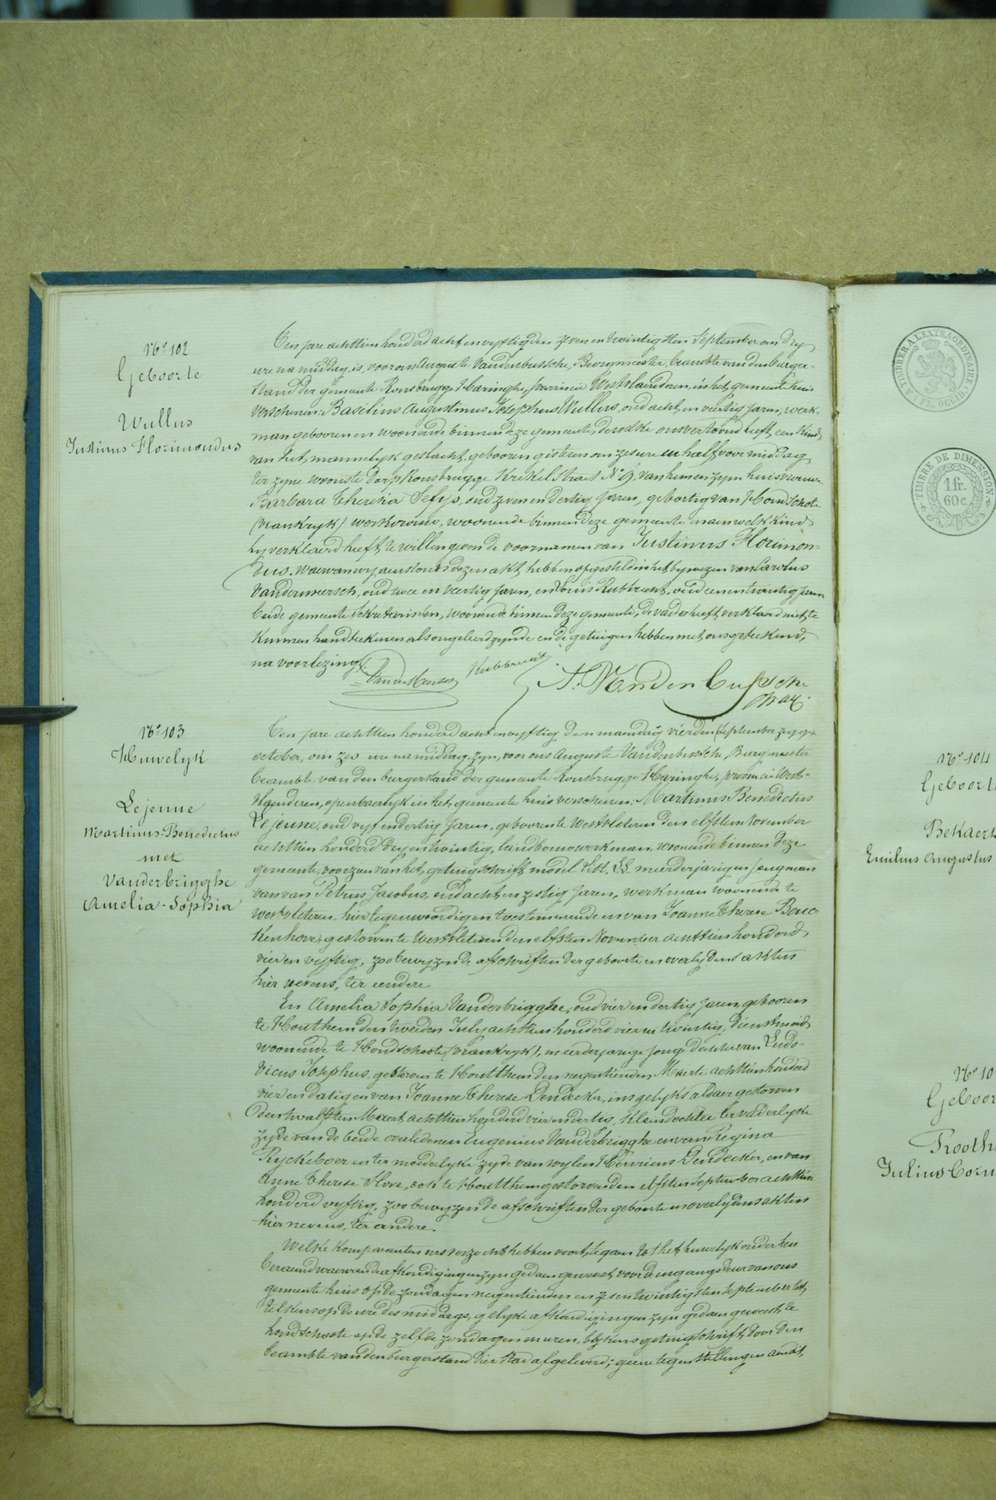 N° 102
Geboorte
Wullus
Justinus Florimondus
Ten jare achttien honderd acht en vyftig den zeven en twintigsten September om dry
ure na middag, is, voor ons Auguste Vandenbussche, Burgmeester, beambte van den burger-
stand der gemeente Rousbrugge Haringhe, provincie Westvlaenderen, in het gemeente huis
verschenen, Baselius Augustinus Josephus Wullus, oud acht en veertig jaren, werk-
man geboren en woonende binnen deze gemeente, dewelke ons vertoond heeft een kind
van het mannelyk geslacht, geboren gisteren om zes ure en half voor middag
ter zyne woonste dorp Rousbrugge Krekelstraet N° 9, van hem en zyne huisvrouw
Barbara Theresia Sefys, oud zeven en dertig jaren, geboortig van Hondschote
(Vrankryk) werkvrouw, woonende binnen deze gemeente en aen welk kind
hy verklaerd heeft te willen geven de voornamen van Justinus Florimon-
dus. Waervan wy aenstonds dezen akt hebben opgesteld in het bywezen van Carolus
Vandermersch, oud twee en veertig jaren, en Louis Rubbrecht, oud een en twintig jaren
beide gemeente sekretarissen, woonende binnen deze gemeente, de vader heeft verklaerd niet te
kunnen handteekenen als ongeleerd zynde en de getuigen hebben met ons geteekend,
na voorlezing.
A. Vandenbussche
N° 103
Huwelyk
Lejeune
Martinus-Benedictus
met
Vanderbrigghe
Amelia-Sophia
Ten jare achttien honderd acht en vyftig den maendag vierden
october, om zes ure na middag zyn, voor ons Auguste Vandenbussche, Burgmeester
beambte van den burgerstand der gemeente Rousbrugge Haringhe, provincie West-
vlaenderen, openbaerlyk in het gemeente huis verschenen: Martinus Benedictus
Lejeune, oud vyf en dertig jaren, geboren te Westvleteren den elfsten November
achttien honderd dry en twintig, landbouwwerkman, woonende binnen deze
gemeente, voorzien van het getuigschrift model Litt. meerderjarigen jongman
van Petrus Jacobus, oud acht en zestig jaren, werkman woonende te
Westvleteren, hier tegenwoordig en toestemmende en van Joanne Therese Beuc-
kenhove, gestorven te Westvleteren den elfsten November achttien honderd
vier en vyftig, zoo bewyzen de afschriften der geboorte en overlydens akten
hier nevens, ter eendere
En Amelia Sophia Vanderbrigghe, oud vier en dertig jaren geboren
te Houthem den tweeden July achttien honderd vier en twintig, dienstmeid
woonende te Hondschoote (Vrankryk), meerderjarige jonge dochter van Ludo-
vicus Josephus, gestorven te Houthem den negentienden Maerte achttien honderd
vier en dertig en van Joanne Therese Dendecker, insgelyks aldaer gestorven
den twaelfsten Maert achttien honderd vier en dertig, kleindochter ter vaderlyke
zyde van de beide overledenen Eugenius Vanderbrigghe en van Regina
Ryckeboer en ter moederlyke zyde van wylen Henricus Dendecker, en van
Anne Therese, ook te Houthem gestorven den elfsten September achttien
honderd vyftig, zoo bewyzen de afschriften der geboorte en overlydens akten
hier nevens, ter andere.
Welke komparanten ons verzocht hebben voort te gaen tot het huwelyk onder hen
beraemd waervan de afkondigingen zyn gedaen geweest voor den ingang deur van ons
gemeente huis op de zondagen negentienen en zes en twintigsten September
telkens op de ure des middags, gelyke afkondigingen zyn gedaen geweest te
Hondschoote op de zelfde zondagen en uren, blykens getuigschrift door den
beambte van den burgerstand dier stad afgeleverd; geene tegenstellingen aen dit,
TIMBRE A L'EXTRAORDINAIRE
TIMBRE DE DIMENSION
1 fr.
60 c.
N° 104
Geboort
Bekaert
Emilius Augustus
N° 10
Geboor
Julius Corn